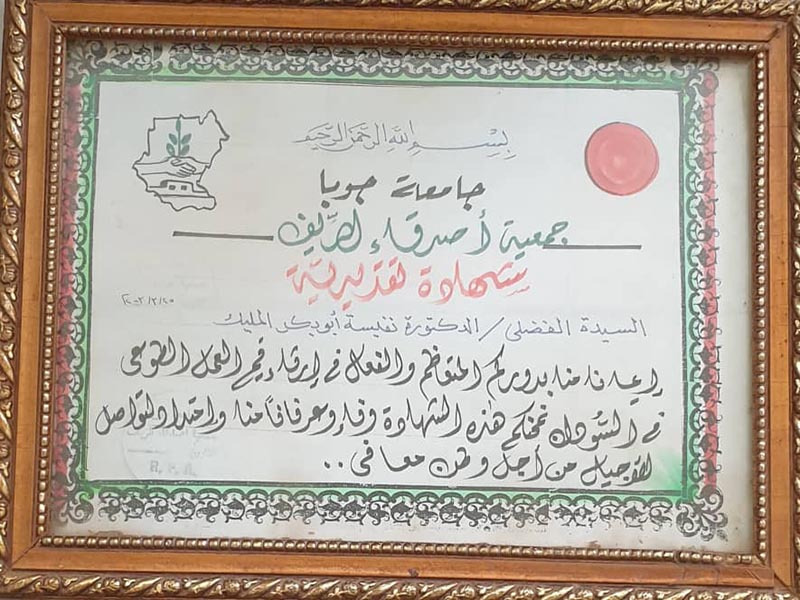 بسم الله الرحمن الرحيم
جامعة جوبا
جمعية أصدقاء الريف
شهادة تقديرية
السيدة الفضلى / الدكتورة نفيسة أبوبكر المليك
إعترافا منا بدوركم المتعاظم والفعال في إرساء قيم العمل الطوعي
في السودان نمنحكم هذه الشهادة وفاء وعرفاناً منا وامتداد لتواصل
الأجيال من أجل وطن معافى ..